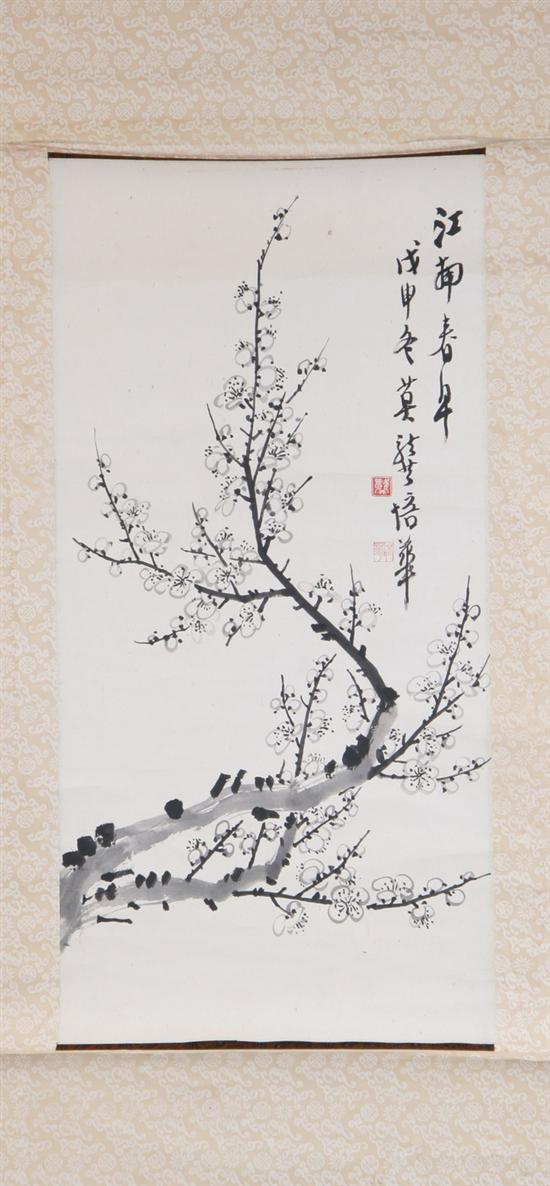 江南春早
戊申冬莫龔培華